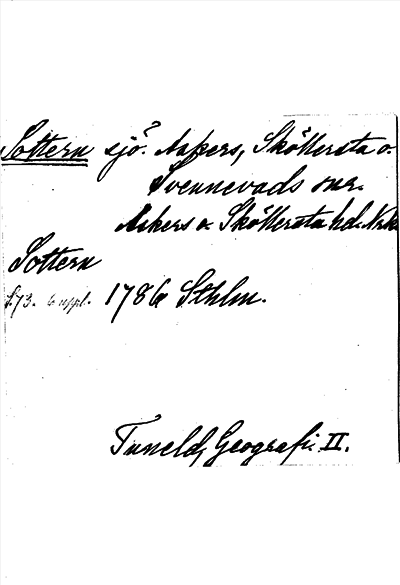 Sottern sjö. Askers, Sköllersta o.
Svennevads snr.
Askers o. Sköllersta hd. Nrke
Sottern
s. 73. 6 uppl. 1786 Sthlm.
Tuneld, Geografi. II.